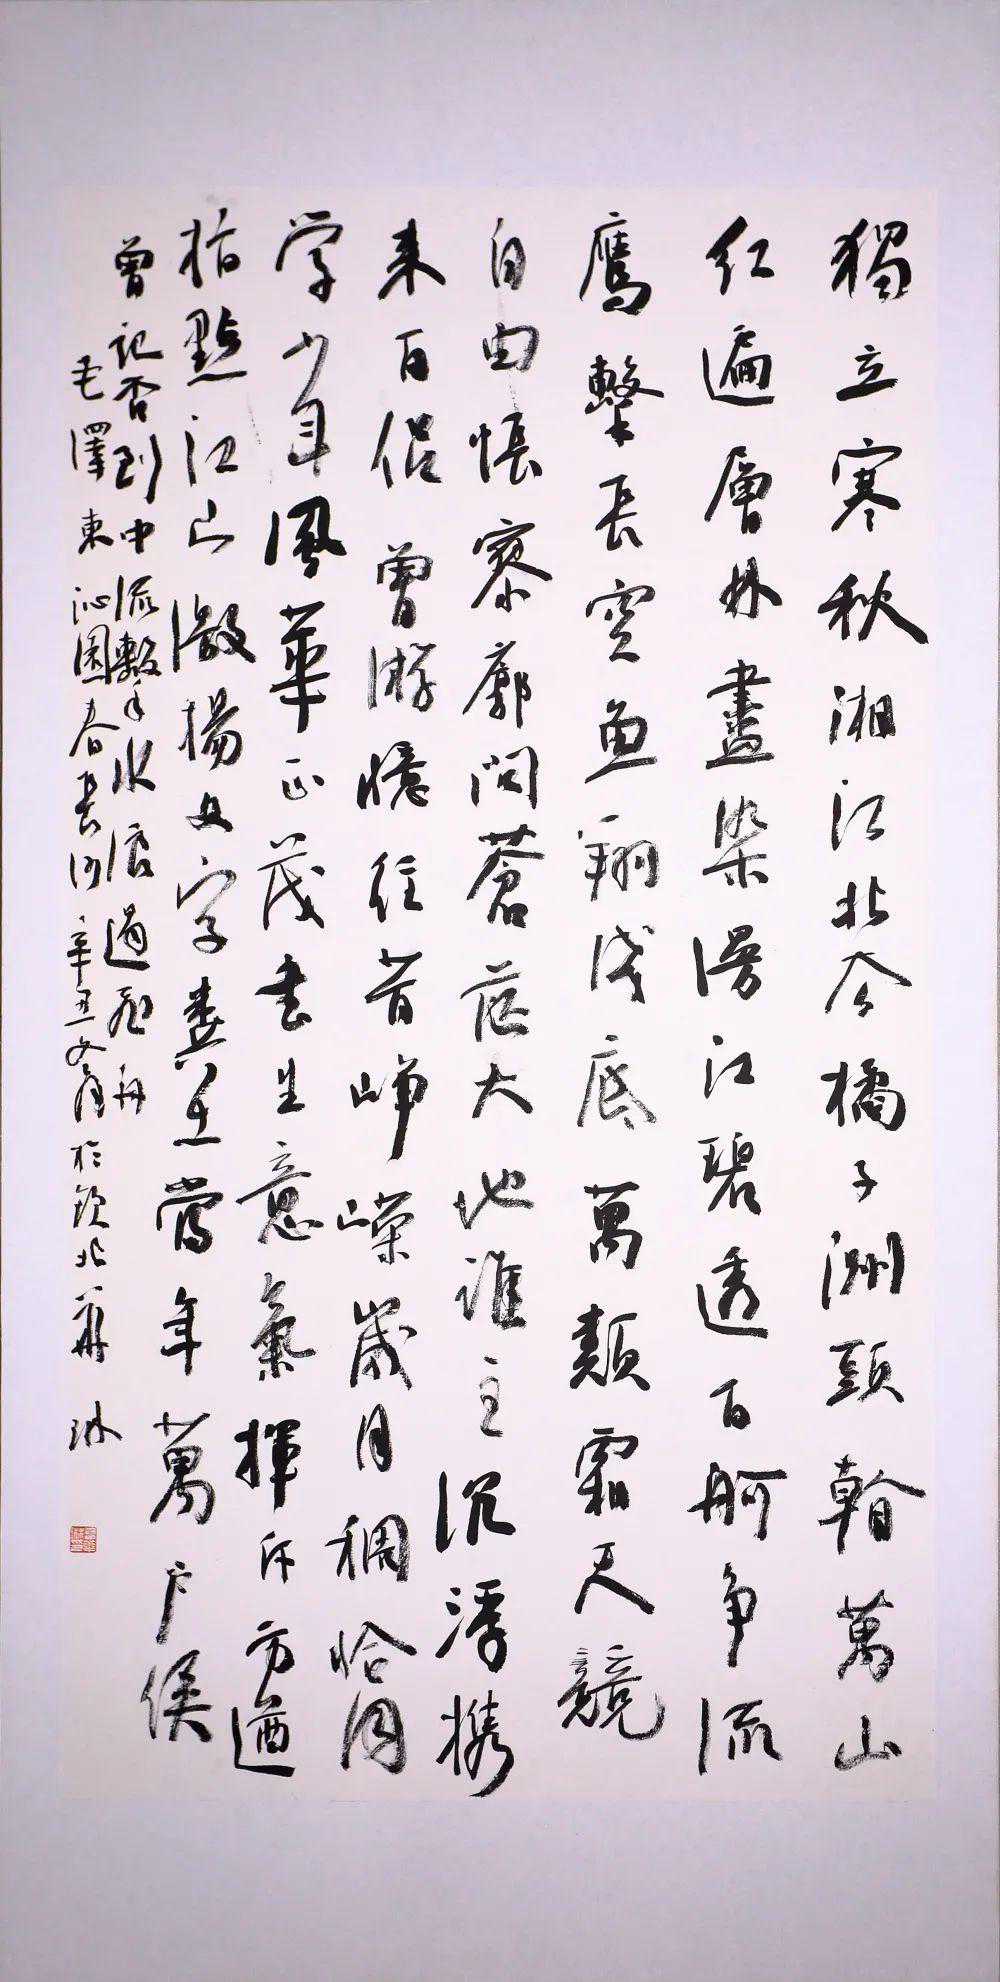 獨立寒秋湘江北去橘子洲頭看萬山
红遍層林盡染漫江碧透百舸争流
鷹擊長空魚翔浅底萬類霜天競
自由悵寥廓問蒼茫大地誰主沉浮携
来百侣曾游憶往昔崢嶸歲月稠恰同
学少年風華正茂書生意氣揮斥方遒
指點江山激揚文字糞土當年萬户侯
曾記否到中流擊水浪遏飛舟
毛澤東沁園春長沙辛丑文於北琳